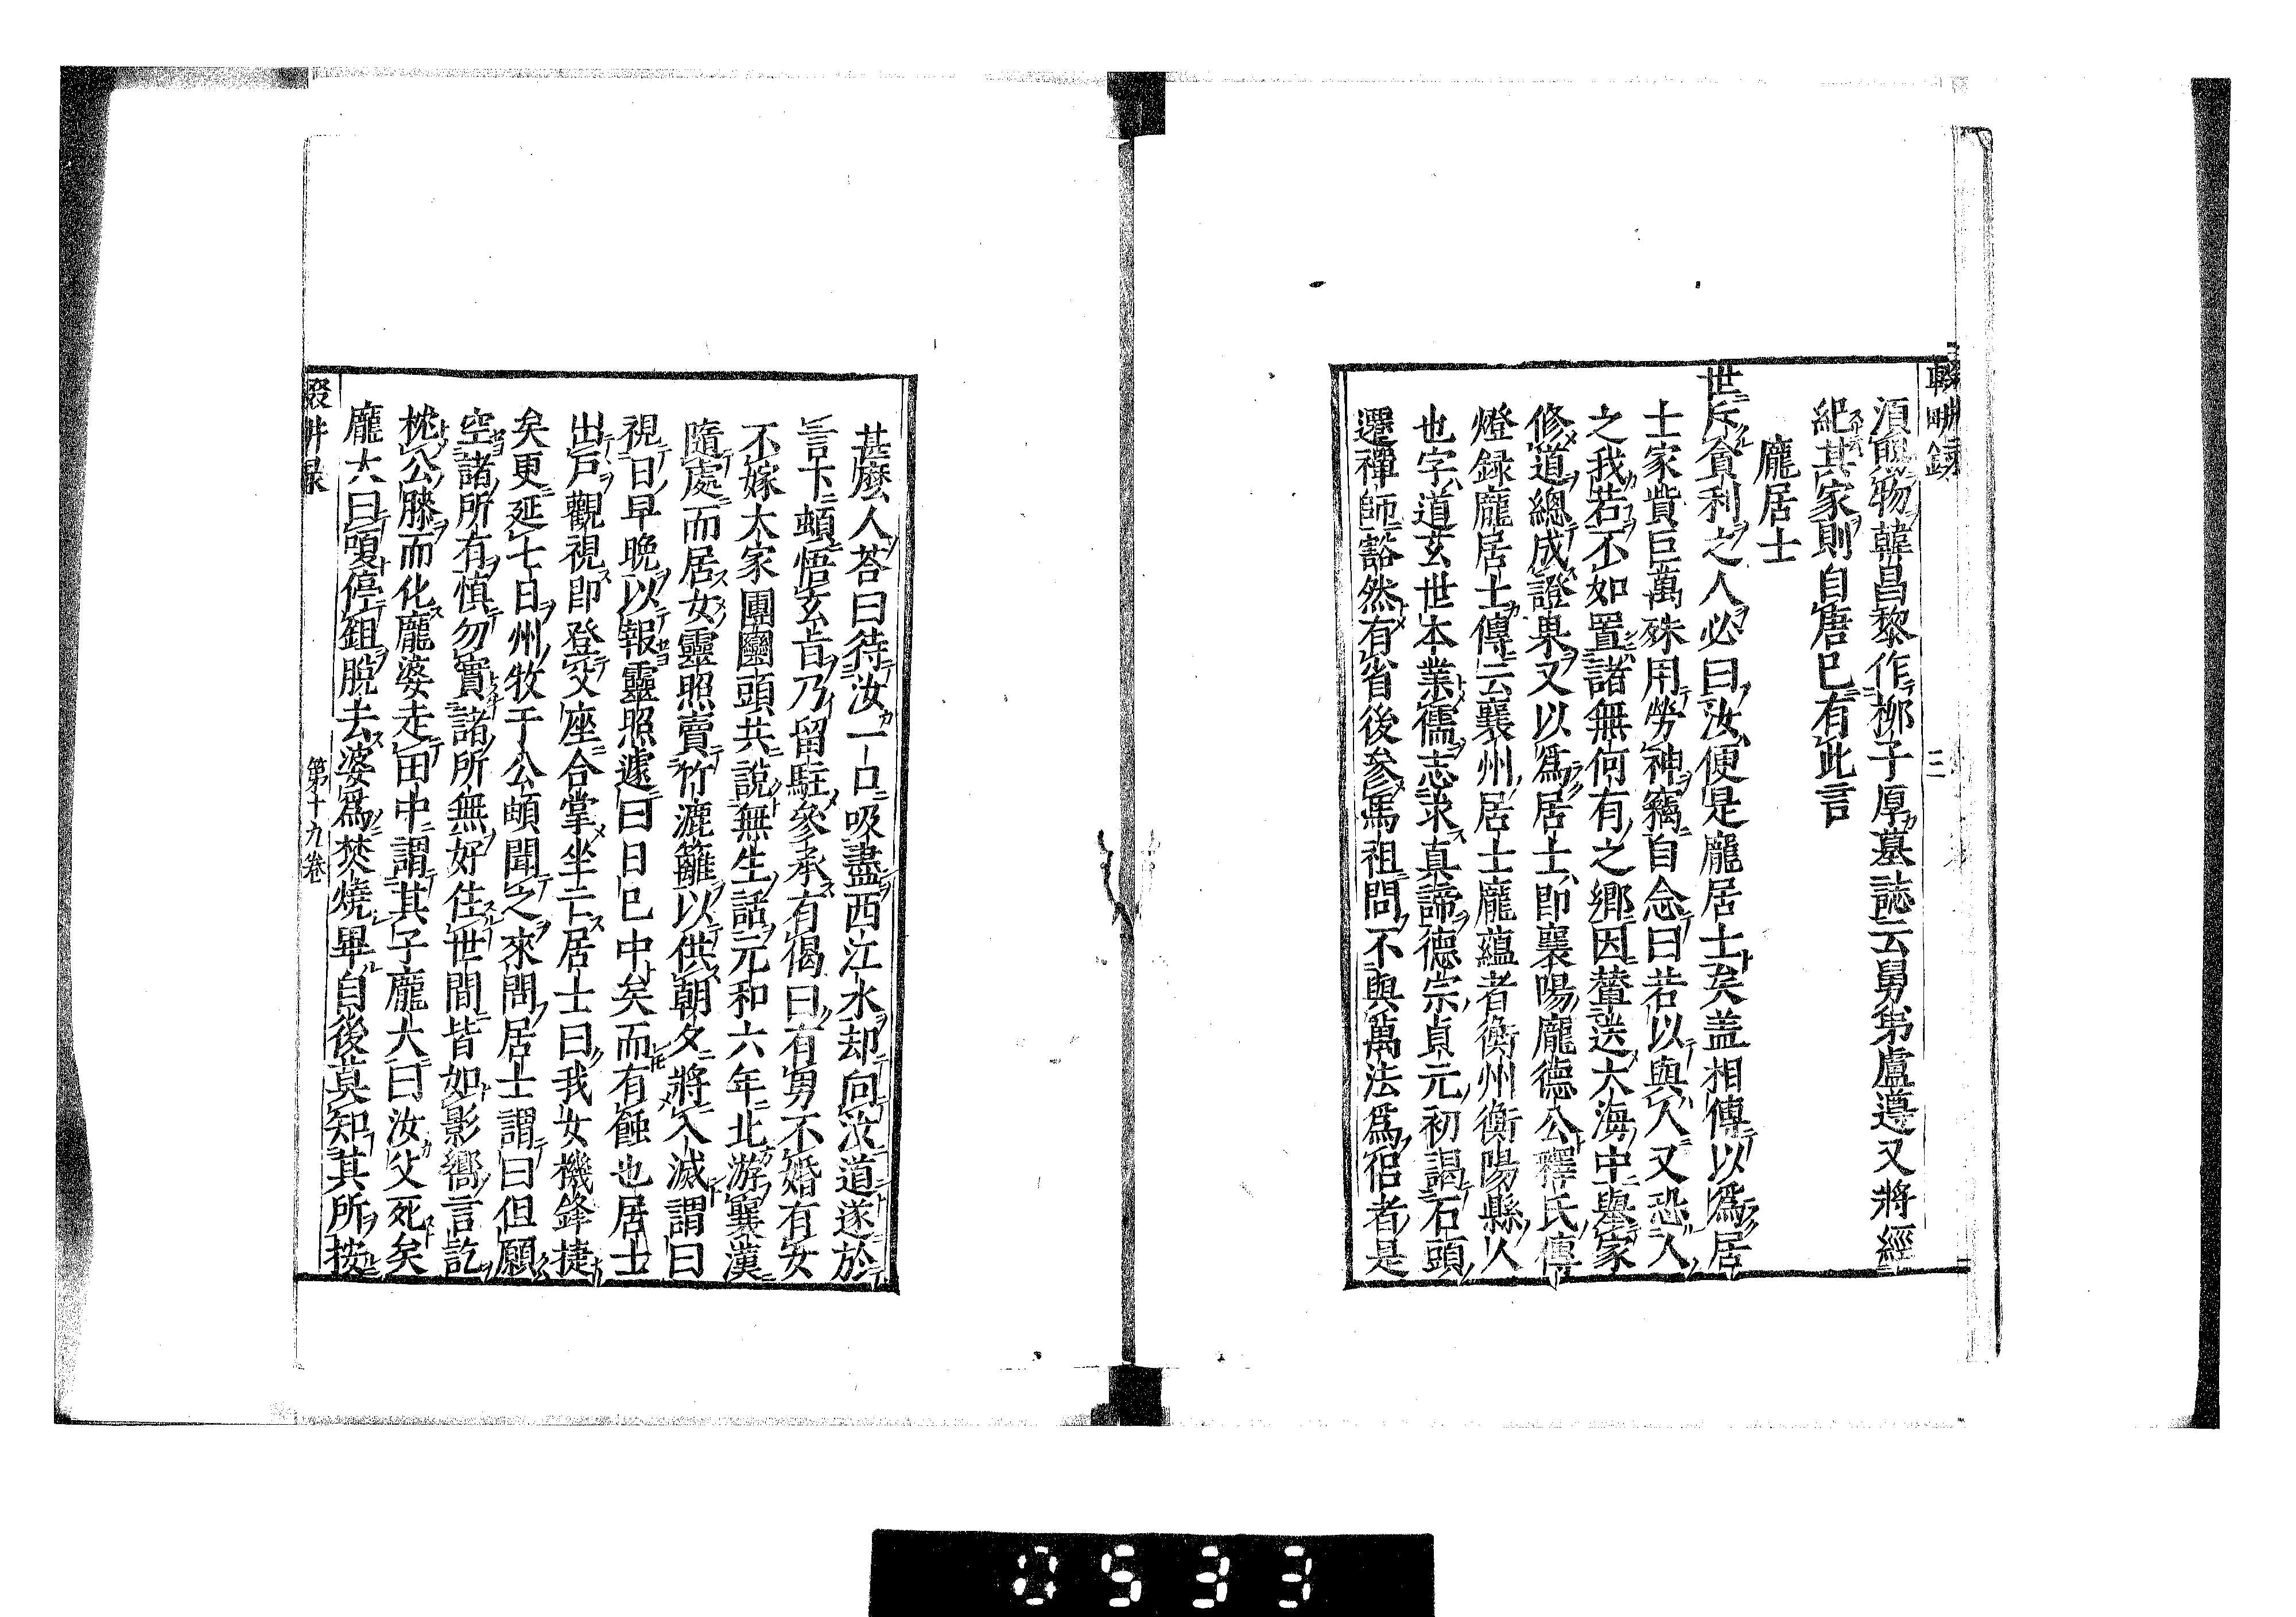 輟畊録
三
須䰟物韓昌黎作柳子厚墓誌云舅弟盧遵又將經
紀其家則自唐已有此言
龐居士
世斥貪利之人必曰汝便是龐居士矣盖相傳以爲居
士家貲巨萬殊用勞神竊自念曰若以與人又恐人
之我若不如置諸無何有之鄉因輦送大海中舉家
修道總成證果又以爲居士即襄陽龐德公釋氏傳
燈録龐居士傳云襄州居士龐藴者衡州衡陽縣人
也字道玄世本業儒志求真諦德宗貞元初謁石頭
遷禪師豁然有省後參馬祖問不與萬法爲侣者是
甚麽人荅曰待汝一口吸盡西江水却向汝道遂於
言下頓悟玄旨乃留駐參承有偈曰有男不婚有女
不嫁大家團圞頭共說無生話元和六年北游襄漢
隨處而居女靈照賣竹漉籬以供朝夕將入滅謂曰
視日早晚以報靈照遽曰日已中矣而有蝕也居士
出戶觀視即登父座合掌坐亡居士曰我女機鋒捷
矣更延七日州牧于公頔聞之來問居士謂曰但願
空諸所有慎勿實諸所無好住世間皆如影響言訖
枕公膝而化龐婆走田中謂其子龐大曰汝父死矣
龐大曰嗄停鉏脫去婆爲焚燒畢自後莫知其所按
輟畊录
第十九卷
0533